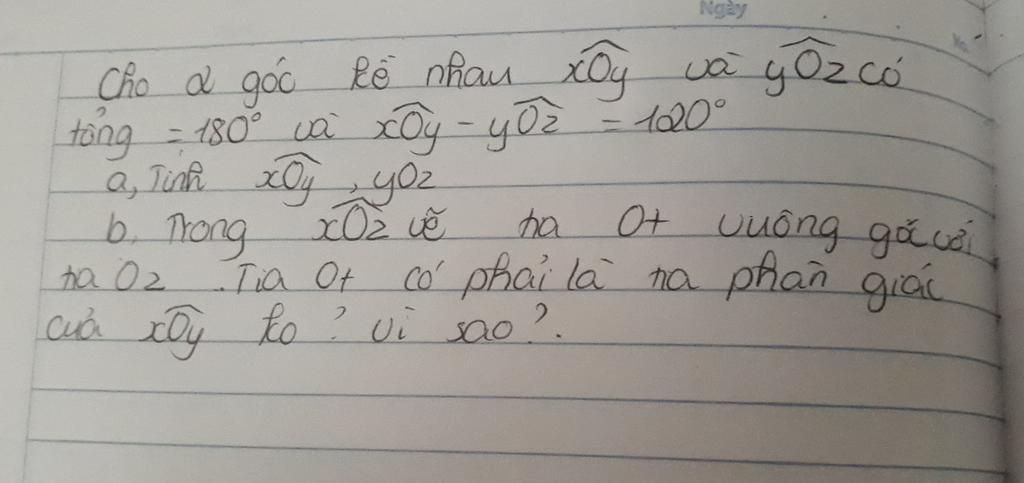 Ngày
No.
Cho 2 góc kề nhau xOy và yOz có
tổng = 180° và xOy - yOz = 120°
a, Tính xOy, yOz
b, Trong xOz vẽ tia Ot vuông góc với
tia Oz. Tia Ot có phải là tia phân giác
của xOy ko? vì sao?.